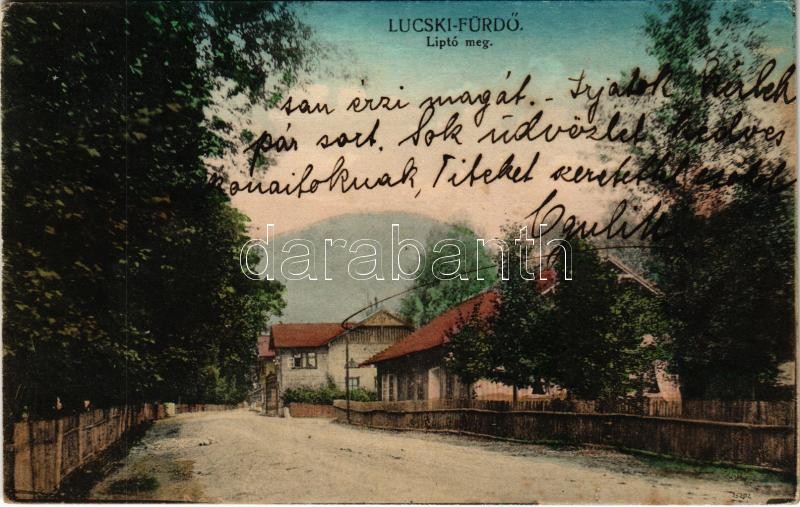 LUCSKI-FÜRDŐ.
Liptó meg.
san érzi magát. - Irjatok
pár sort. Sok üdvözlet kedves
Titeket szeretettel csókol
darabanth